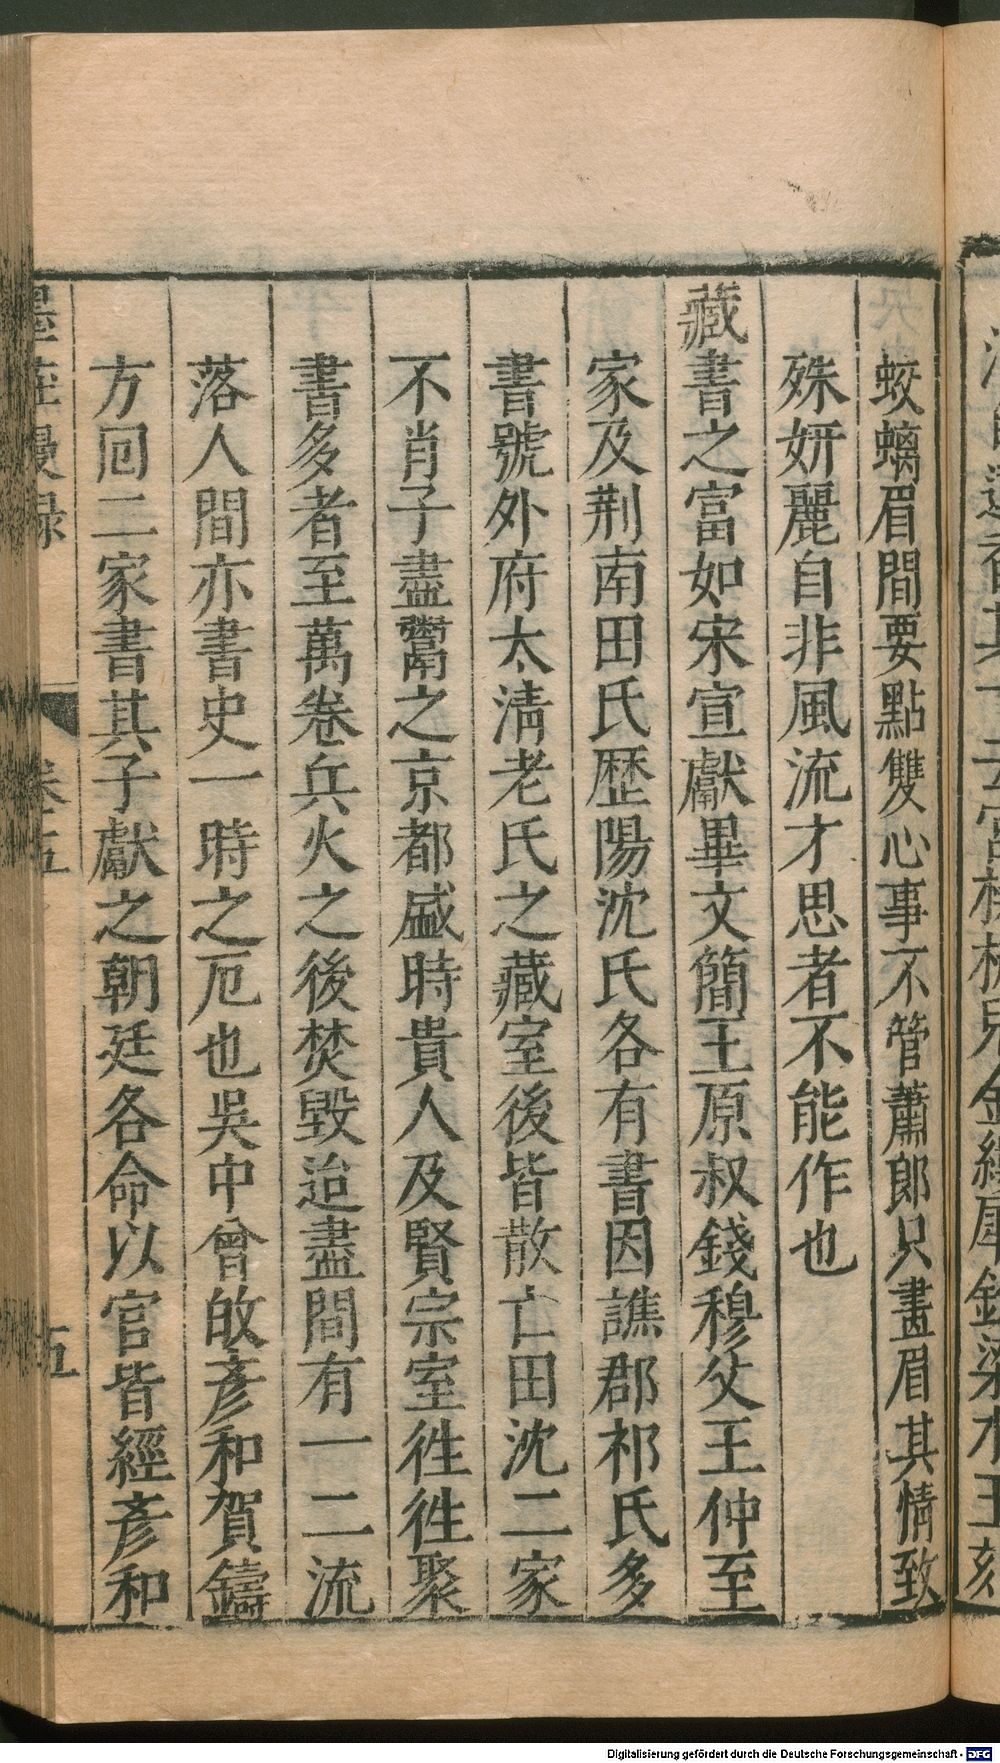 蛟螭眉間要點雙心事不管蕭郎只畫眉其情致
殊妍麗自非風流才思者不能作也
藏書之富如宋宣獻畢文簡王原叔錢穆父王仲至
家及荆南田氏歷陽沈氏各有書因譙郡祁氏多
書號外府太清老氏之藏室後皆散亡田沈二家
不肖子盡鬻之京都盛時貴人及賢宗室徃徃聚
書多者至萬卷兵火之後焚毀迨盡間有一二流
落人間亦書史一時之厄也吳中曾旼彥和賀鑄
方回二家書其子獻之朝廷各命以官皆經彥和
墨莊漫録 卷五 五
Digitalisierung gefördert durch die Deutsche Forschungsgemeinschaft - DFG